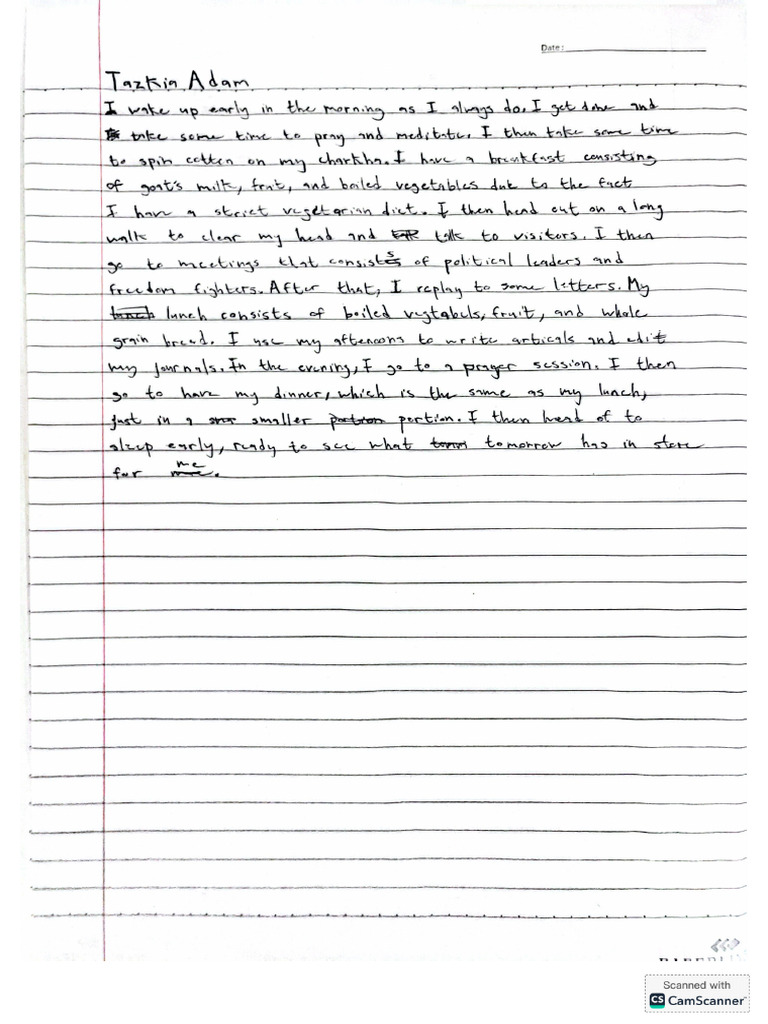 Date:
Tazkia Adam
I wake up early in the morning as I always do. I get done and
take some time to pray and meditate. I then take some time
to spin cotten on my charkha. I have a breakfast consisting
of goat's milk, fruit, and boiled vegetables due to the fact
I have a strict vegetarian diet. I then head out on a long
walk to clear my head and talk to visitors. I then
go to meetings that consists of political leaders and
freedom fighters. After that, I replay to some letters. My
lunch lunch consists of boiled vegtabels, fruit, and whole
grain bread. I use my afternoons to write articals and edit
my journals. In the evening, I go to a prayer session. I then
go to have my dinner, which is the same as my lunch,
just in a smaller portion. I then head of to
sleep early, ready to see what tomorrow has in store
for me.
Scanned with
CS CamScanner